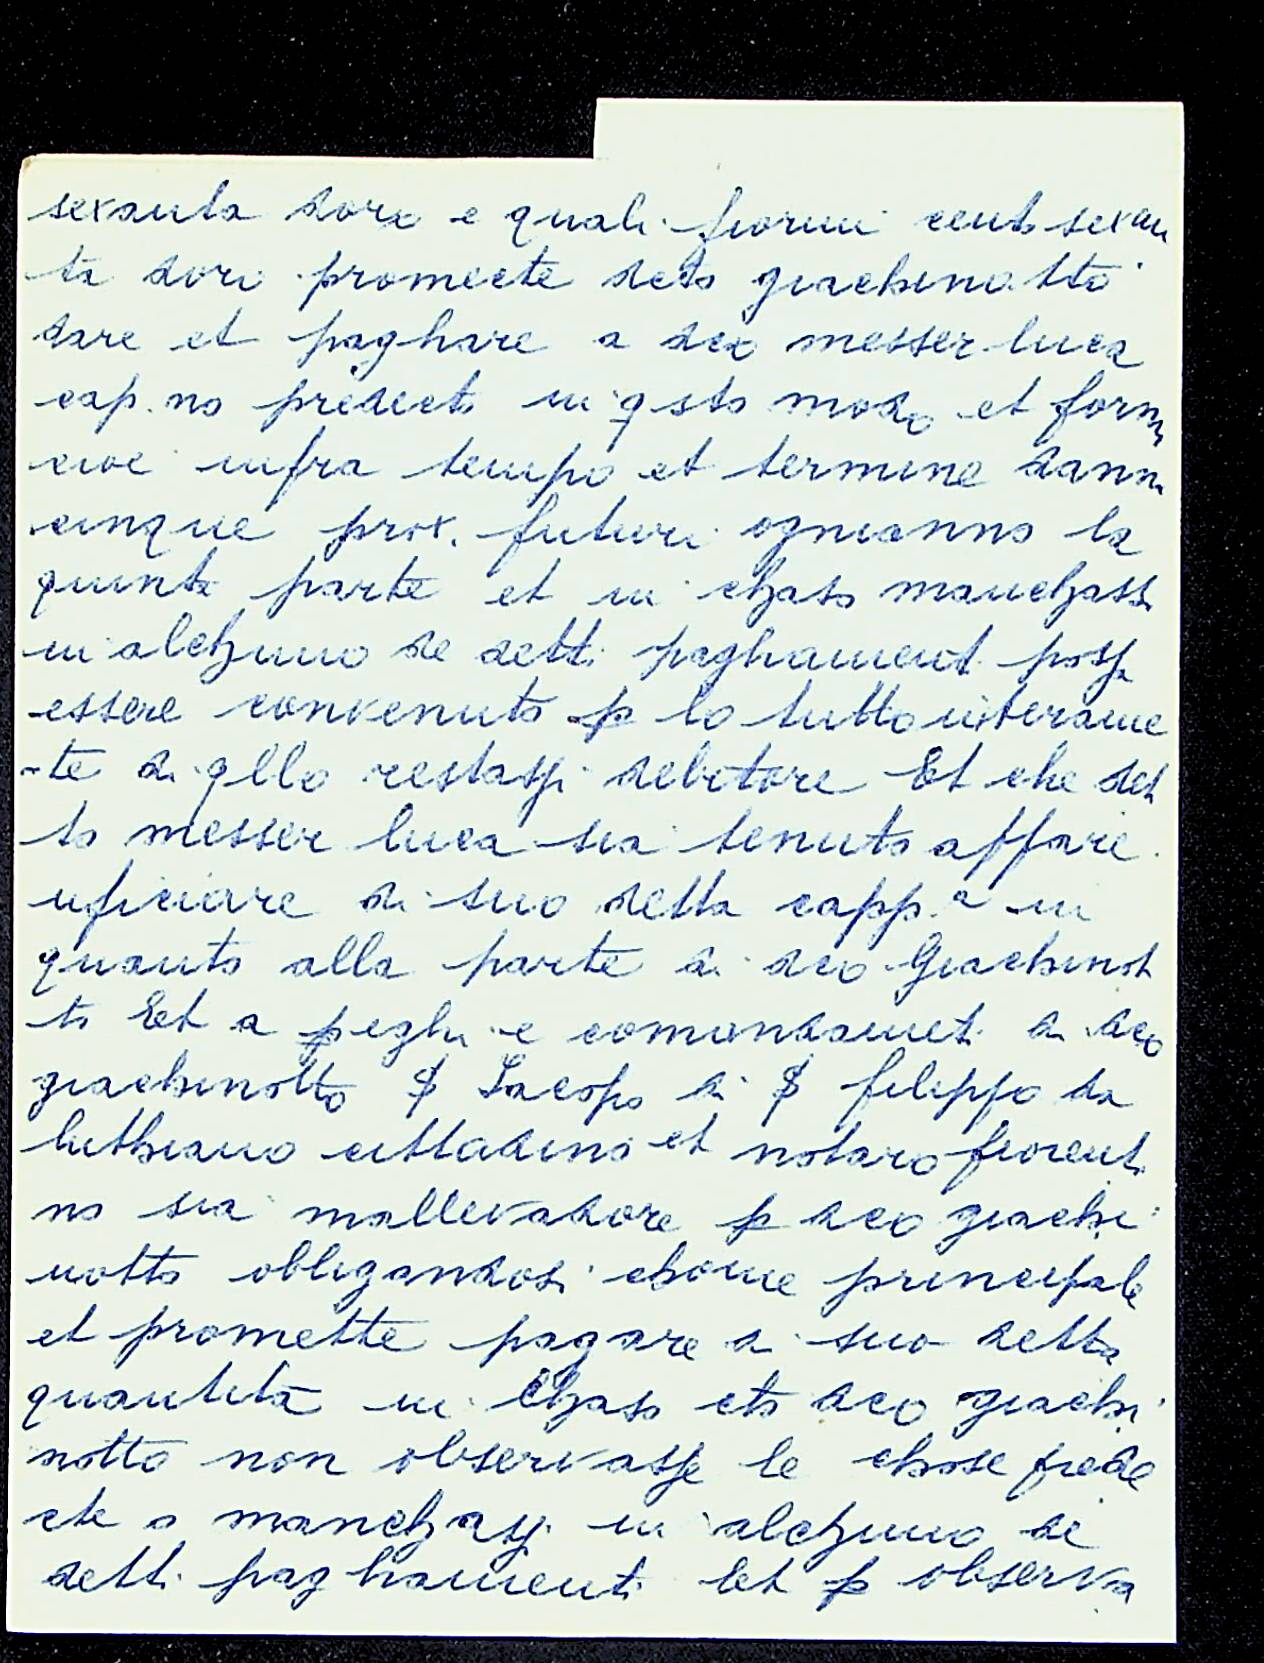 sexanta doro e quali fiorini cento sexan
ta doro promecte decto giachinotto
dare et paghare a dco messer luca
cap.no predecto in qsto modo et form
cioe infra tempo et termine danni
cinque prox. futuri ognianno la
quinta parte et in chaso manchassi
in alchuno de detti paghamenti possa
essere convenuto p lo tutto interame
-te di qllo restassi debitore Et che det
to messer luca sia tenuto affare
uficiare di suo detta capp.a in
quanto alla parte di dco Giachinot
to Et a pieghi e comandamet. di dco
giachinotto $ Iacopo di $ filippo da
lutiano cittadino et notaro fiorenti
no sia mallevadore p dco giachi
notto obligandosi chome principale
et promette pagare di suo detta
quantità in chaso cto dco giachi
notto non observasse le chose prede
cte o manchassi in alchuno de
detti paghamenti Et p observa